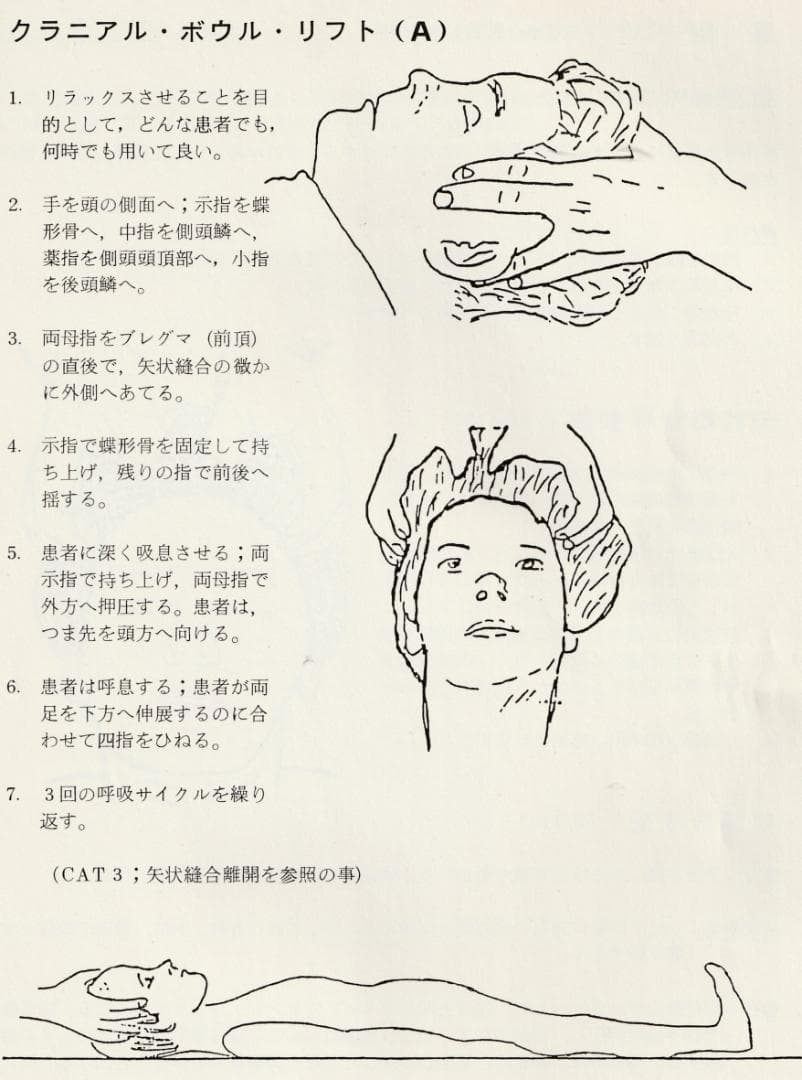 クラニアル・ボウル・リフト（A）
1. リラックスさせることを目
的として，どんな患者でも，
何時でも用いて良い。
2. 手を頭の側面へ；示指を蝶
形骨へ，中指を側頭鱗へ，
薬指を側頭頭頂部へ，小指
を後頭鱗へ。
3. 両母指をブレグマ（前頂）
の直後で，矢状縫合の微か
に外側へあてる。
4. 示指で蝶形骨を固定して持
ち上げ，残りの指で前後へ
揺する。
5. 患者に深く吸息させる；両
示指で持ち上げ，両母指で
外方へ押圧する。患者は，
つま先を頭方へ向ける。
6. 患者は呼息する；患者が両
足を下方へ伸展するのに合
わせて四指をひねる。
7. 3回の呼吸サイクルを繰り
返す。
（CAT3；矢状縫合離開を参照の事）